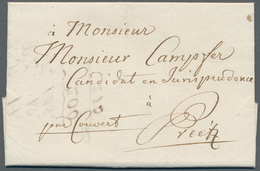 à Monsieur
Monsieur Campfer
Candidat en Jurisprudence
à
par Couvert Preetz